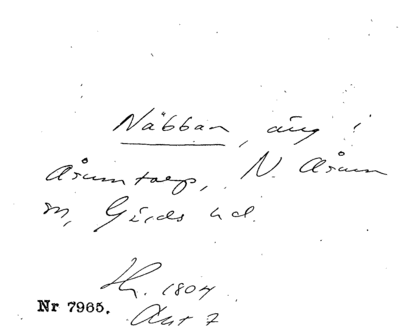 Näbban, äng i
Åsumtorp, N. Åsum
sn, Gärds hd.
Hr. 1804
Nr 7965.
Akt 7